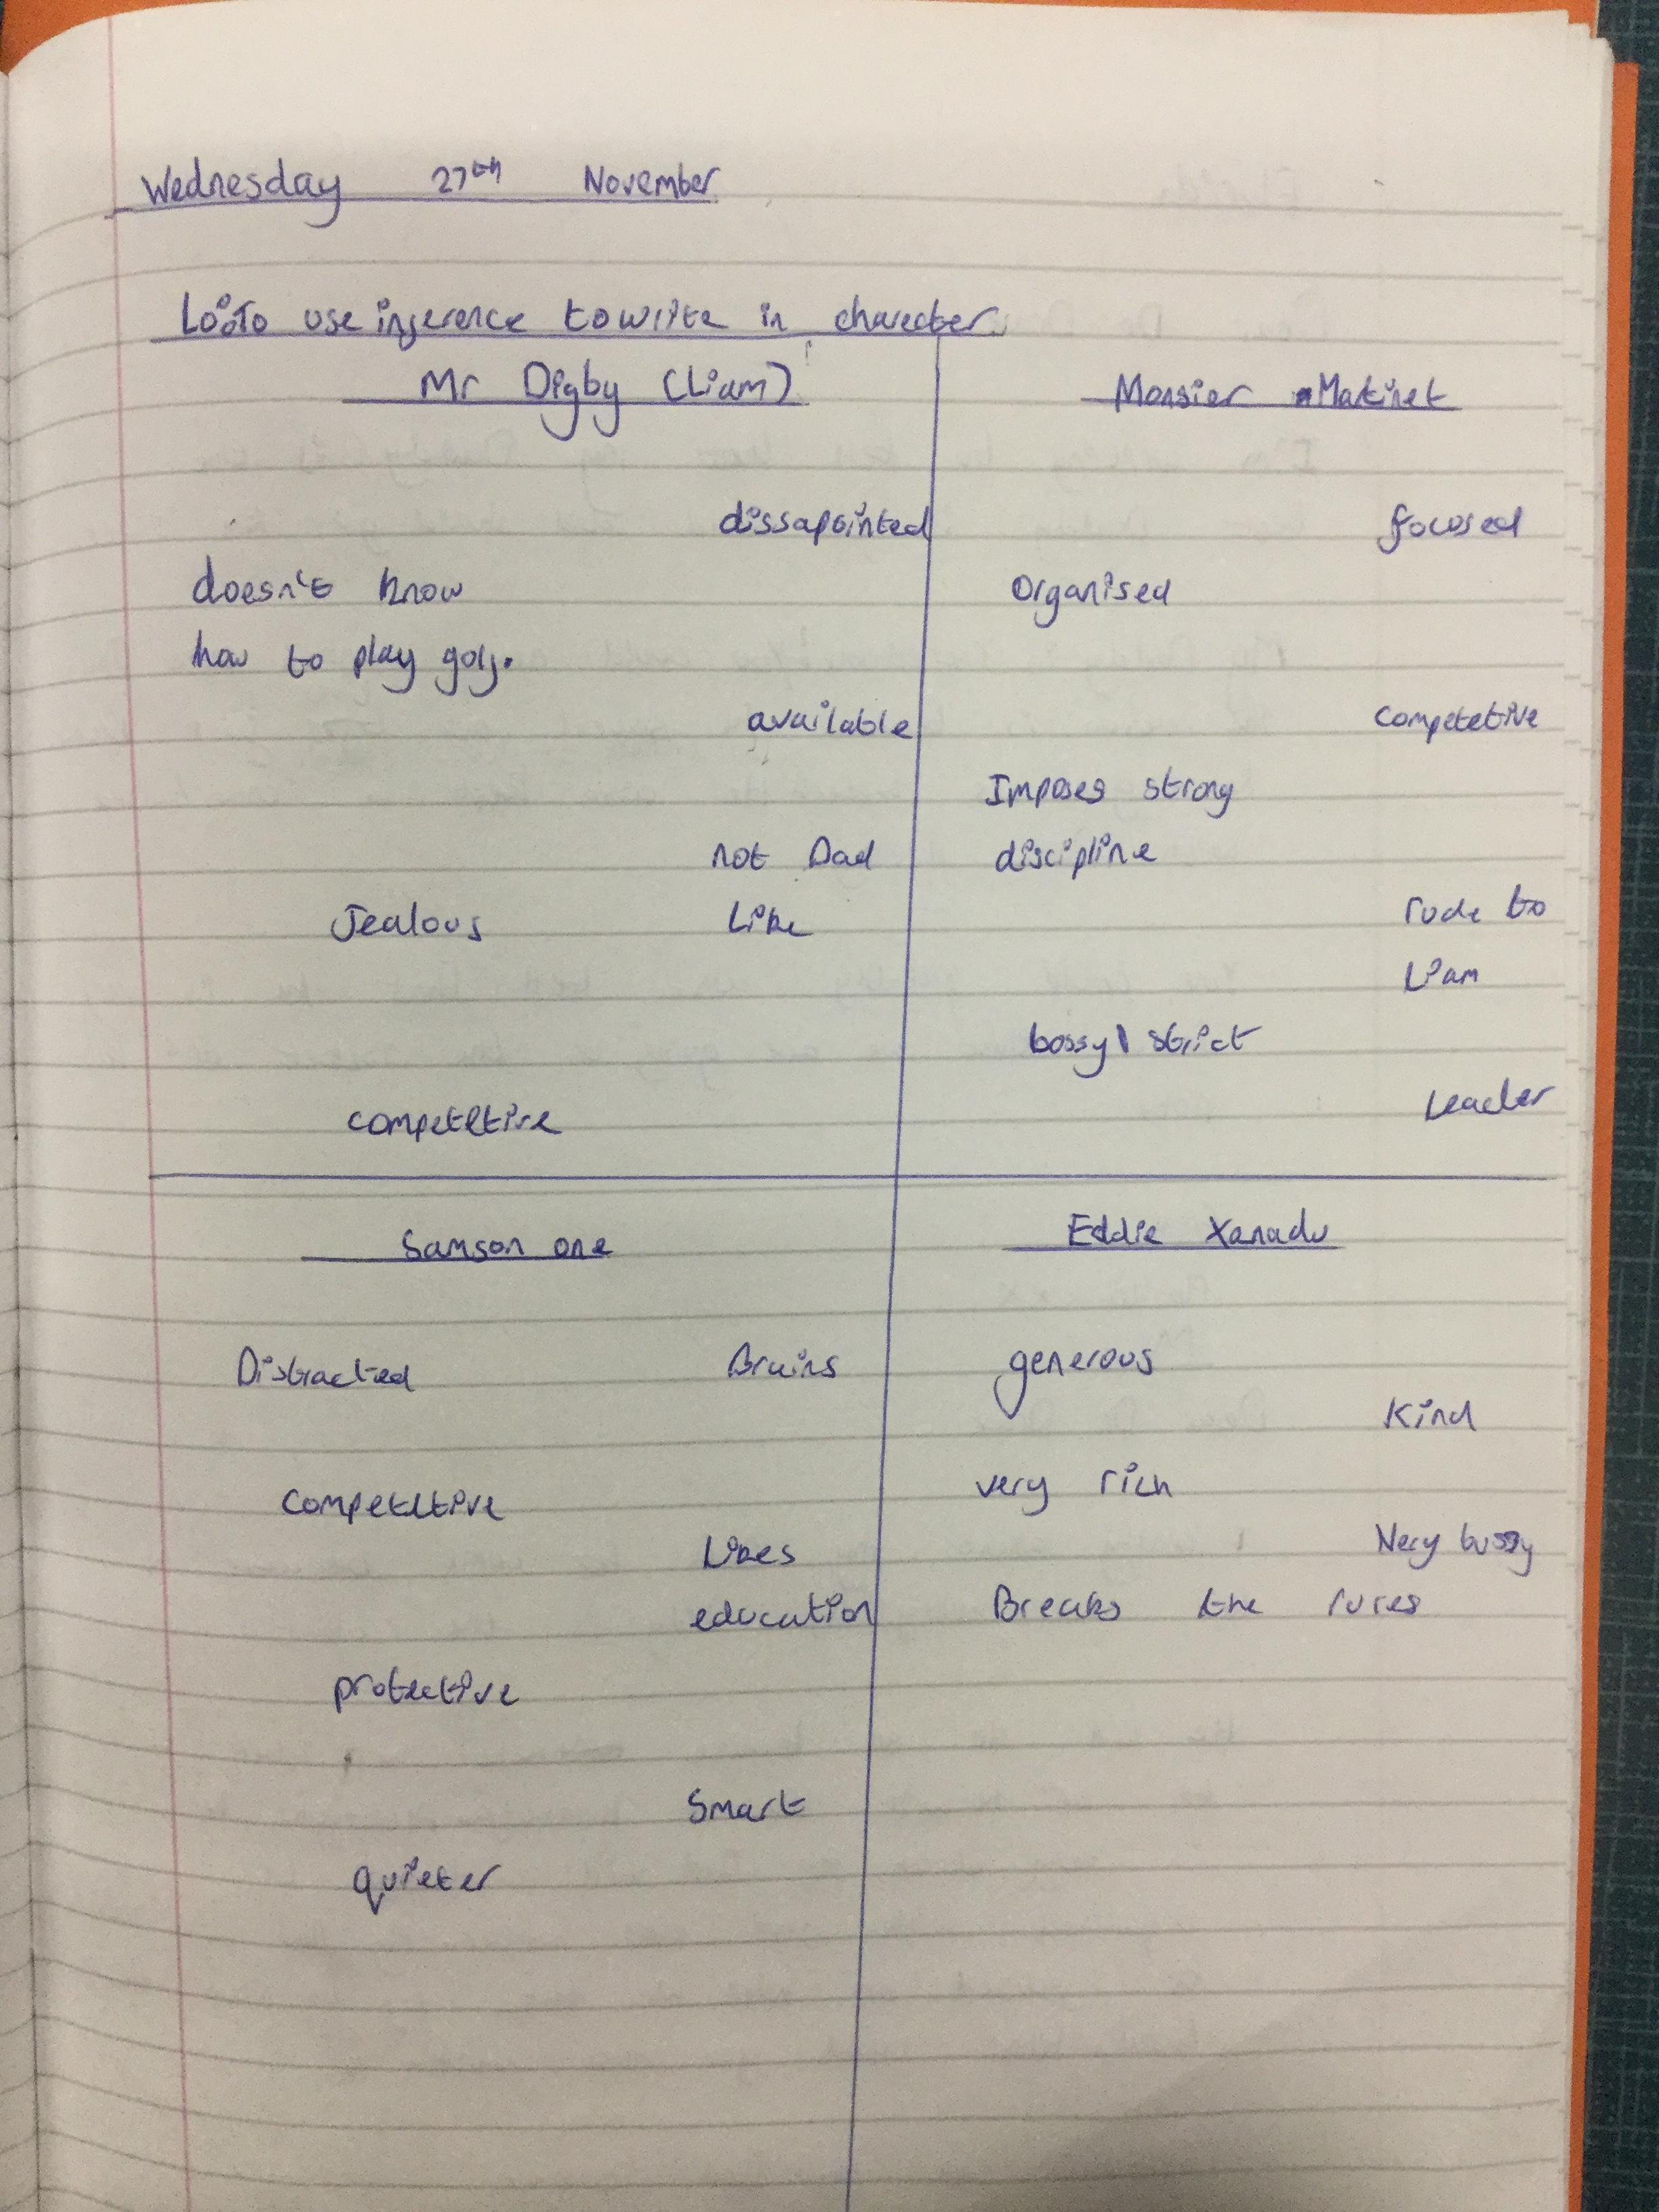 Wednesday 27th November
Lo: To use inference to write in charecter.
Mr Digby (Liam)
dissapointed
doesn't know
how to play golf.
available
not Dad
Jealous Like
competetive
Monsier Martinet
focused
Organised
Competetive
Imposes strong
discipline
rude to
Liam
bossy \ strict
Leader
Samson one
Distracted Brains
competetive
Likes
education
protective
Smart
quieter
Eddie Xanadu
generous
Kind
very rich
Very bussy
Breaks the rules